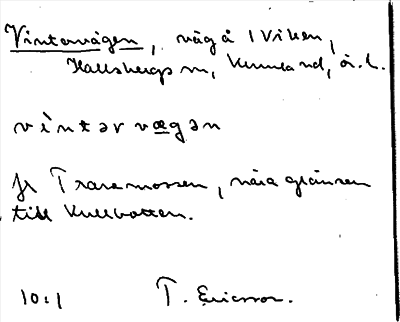 Vintervägen, väg å Viken,
Hallsbergs sn, Kumla hd, ö.l.
vìntər vægən
fr Traremossen, nära gränsen
till Kullbotten.
10:1 T. Ericsson.